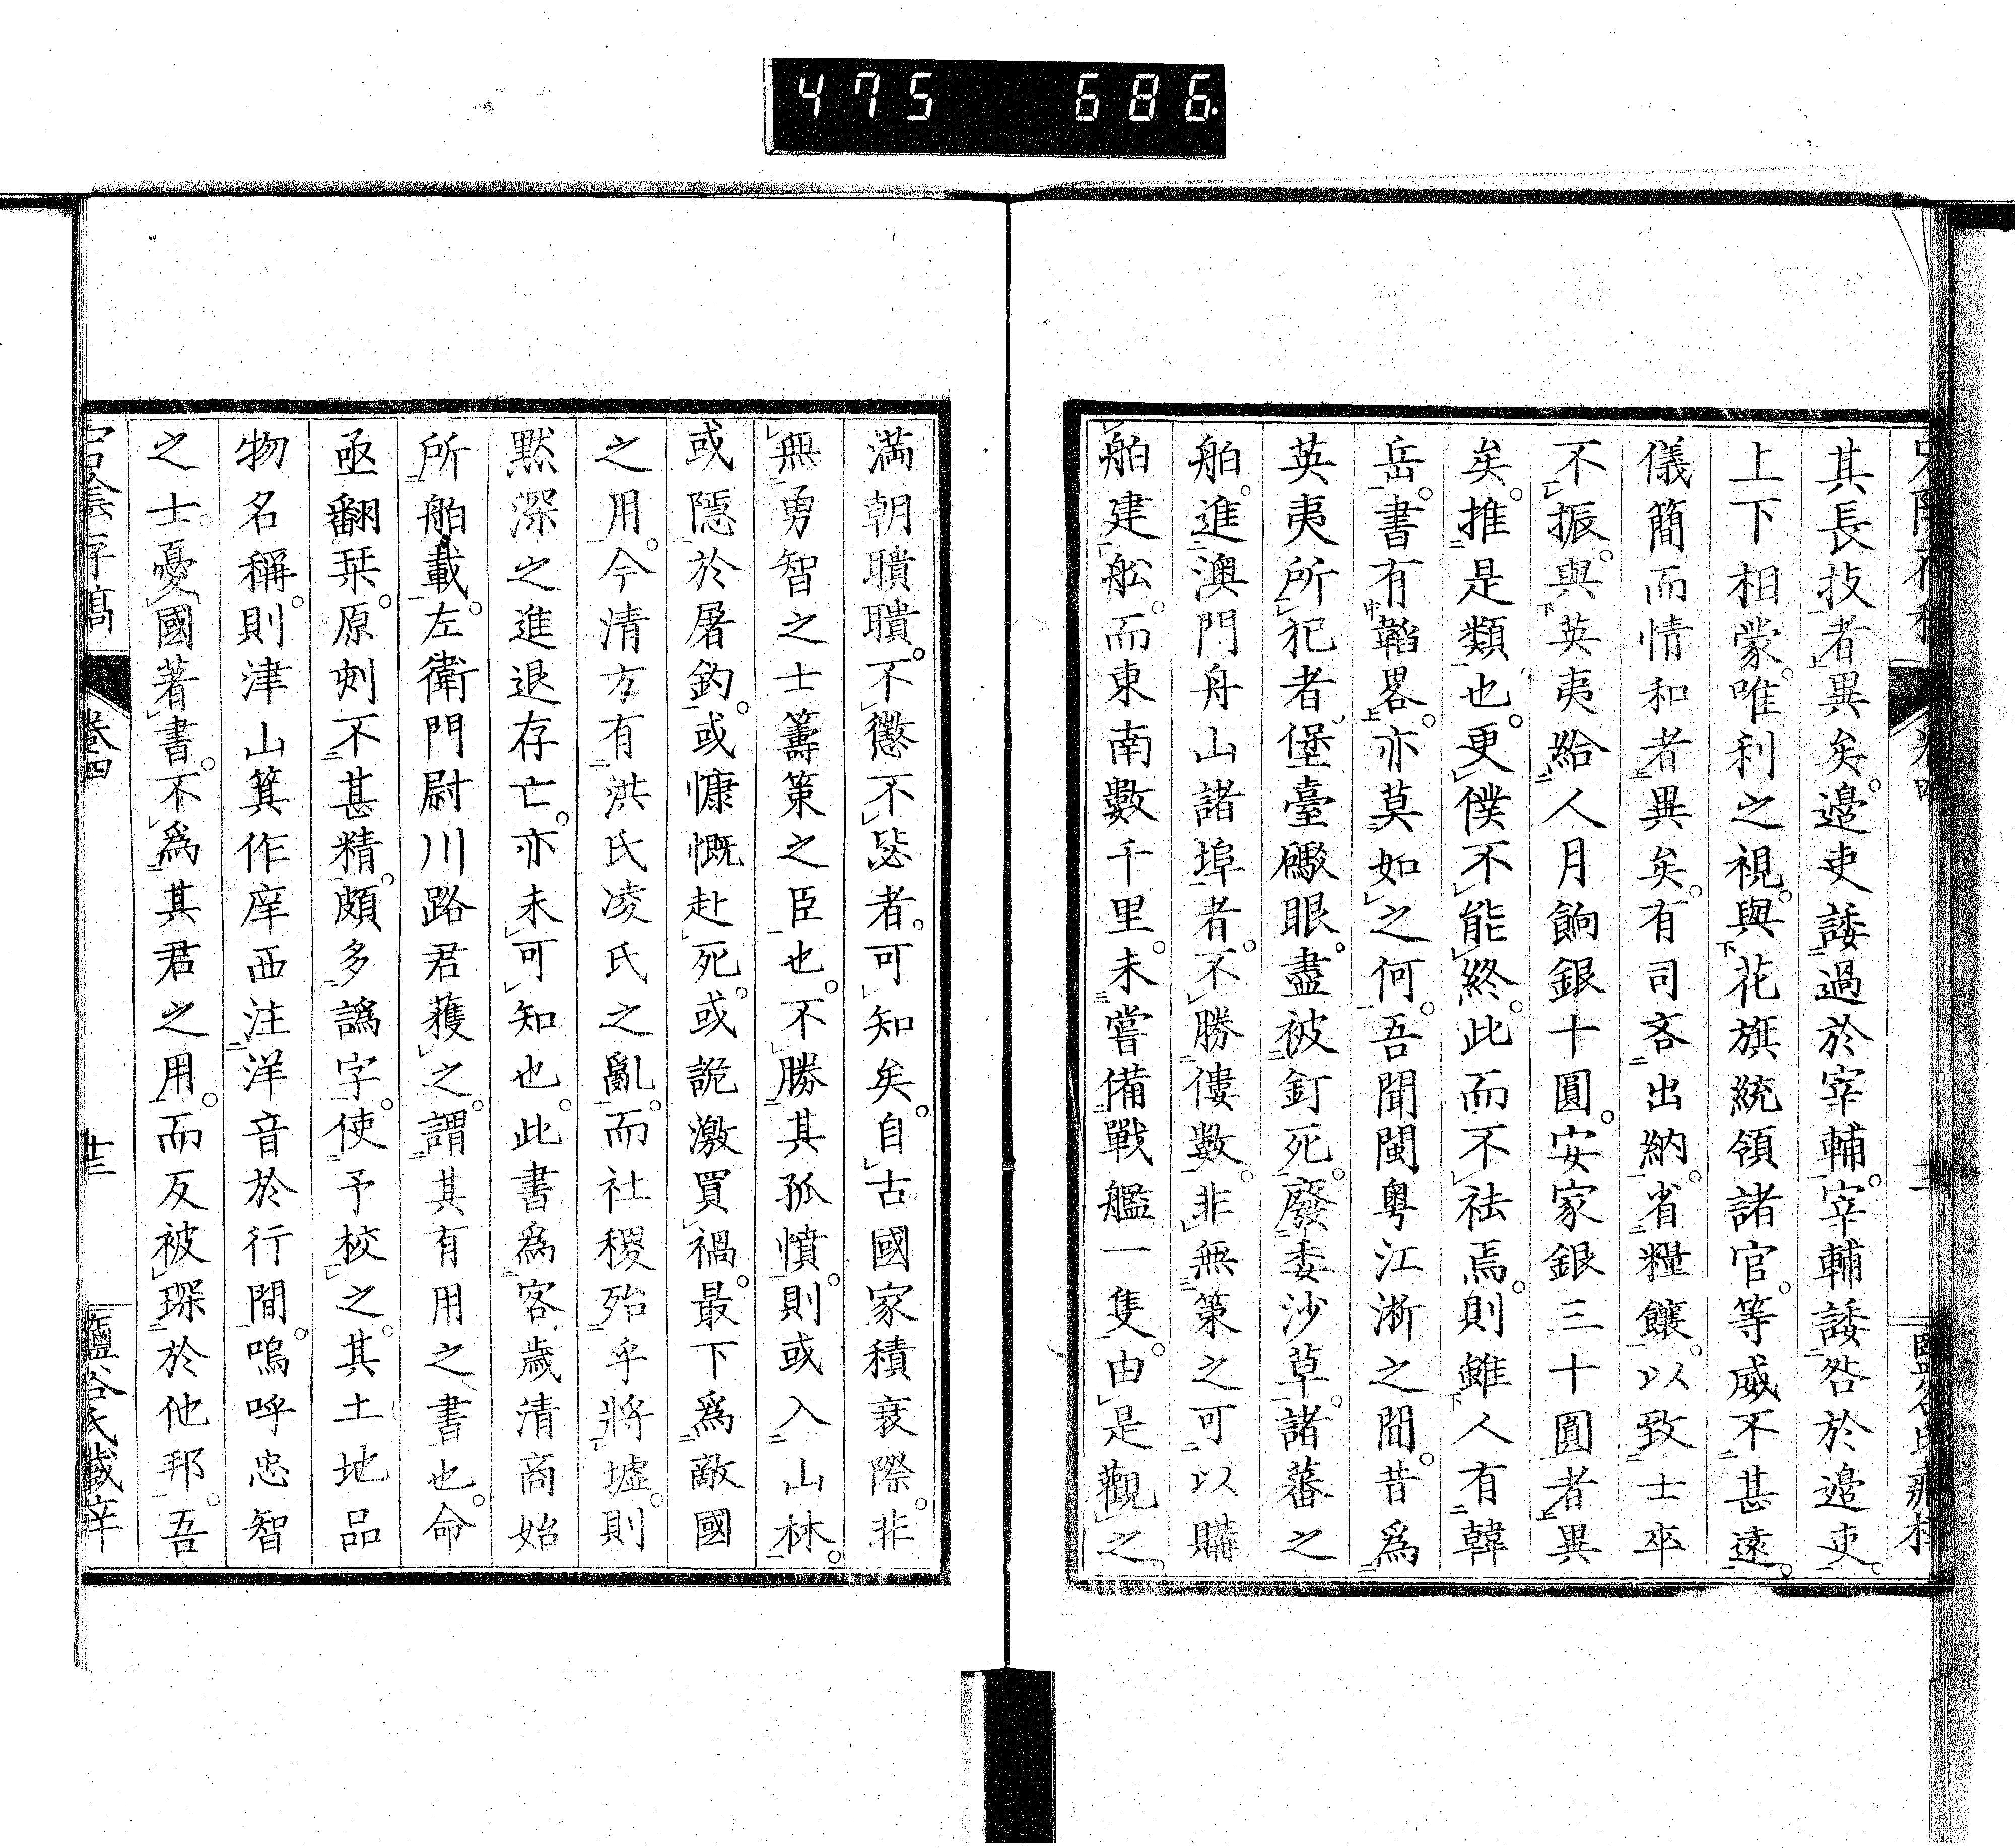 475 686
其長技者異矣。邊吏諉過於宰輔。宰輔諉咎於邊吏。
上下相蒙。唯利之視。與花旗統領諸官。等威不甚遠。
儀簡而情和者異矣。有司吝出納。省糧饟。以致士卒
不振。與英夷給人月餉銀十圓。安家銀三十圓者異
矣。推是類也。更僕不能終。此而不祛焉。則雖人有韓
岳。書有韜畧。亦莫如之何。吾聞閩粤江淅之間。昔爲
英夷所犯者。堡臺礮眼。盡被釘死。廢委沙草。諸蕃之
舶。進澳門舟山諸埠者。不勝僂數。非無策之可以購
舶建舩。而東南數千里。未嘗備戰艦一隻。由是觀之
滿朝聵聵。不懲不毖者。可知矣。自古國家積衰際。非
無勇智之士籌策之臣也。不勝其孤憤。則或入山林。
或隱於屠釣。或慷慨赴死。或詭激買禍。最下爲敵國
之用。今清方有洪氏凌氏之亂。而社稷殆乎將墟。則
默深之進退存亡。亦未可知也。此書爲客歲清商始
所舶載。左衛門尉川路君獲之。謂其有用之書也。命
亟翻栞。原刻不甚精。頗多譌字。使予校之。其土地品
物名稱。則津山箕作庠西注洋音於行間。嗚呼忠智
之士。憂國著書。不爲其君之用。而反被琛於他邦。吾
卷四
十三